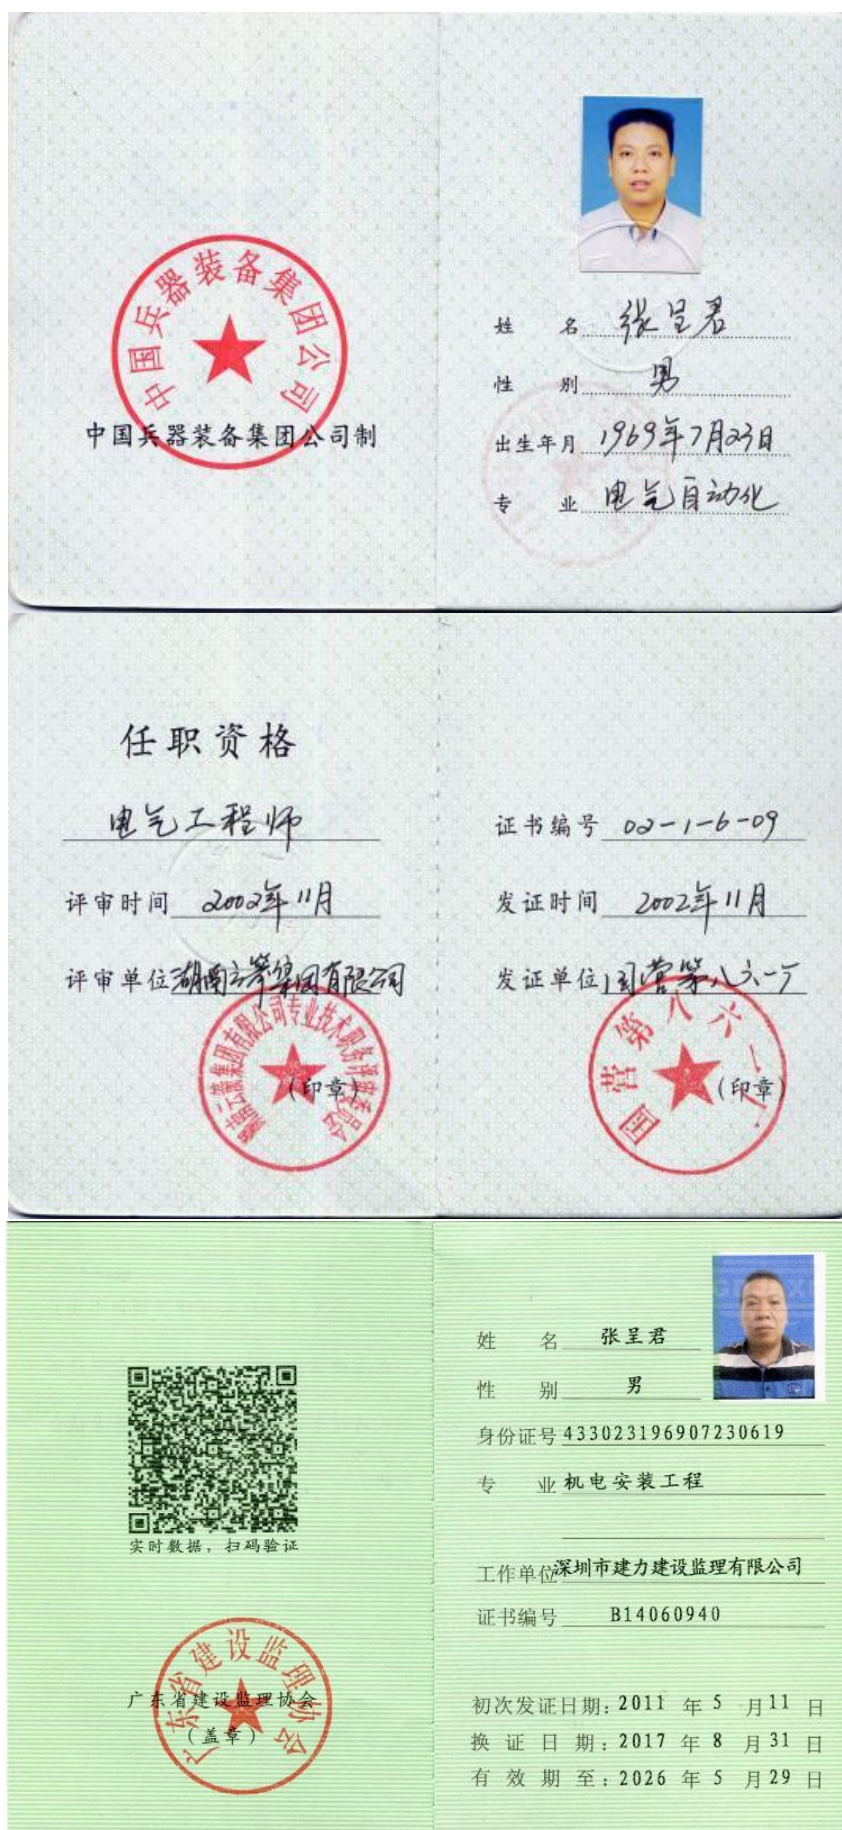 中国兵器装备集团公司
中国兵器装备集团公司制
姓名 张呈君
性别 男
出生年月 1969年7月23日
专业 电气自动化
任职资格
电气工程师
评审时间 2002年11月
评审单位 湖南云箭集团有限公司
湖南云箭集团有限公司专业技术职务评审委员会
(印章)
证书编号 02-1-6-09
发证时间 2002年11月
发证单位 国营第八六一厂
国营第八六一厂
(印章)
实时数据，扫码验证
广东省建设监理协会
广东省建设监理协会
(盖章)
姓名 张呈君
性别 男
身份证号 433023196907230619
专业 机电安装工程
工作单位 深圳市建力建设监理有限公司
证书编号 B14060940
初次发证日期：2011 年 5 月 11 日
换证日期：2017 年 8 月 31 日
有效期至：2026 年 5 月 29 日